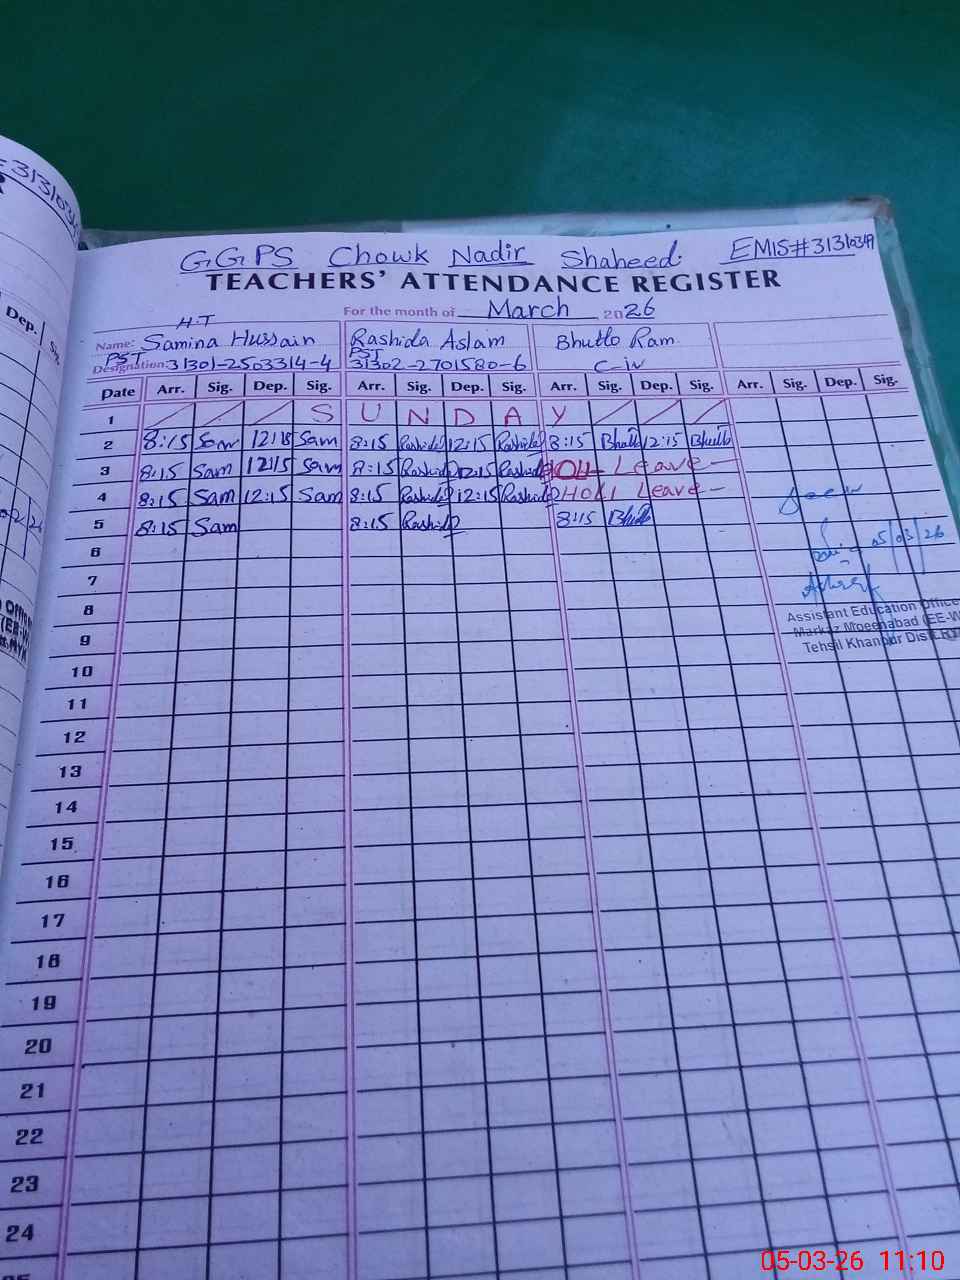 GGPS Chowk Nadir Shaheed. EMIS#31310349
TEACHERS' ATTENDANCE REGISTER
For the month of March 2026
H.T
Name: Samina Hussain Rashida Aslam Bhutto Ram
PST PST
Designation: 31301-2503314-4 31302-2701580-6 C-IV
Date Arr. Sig. Dep. Sig. Arr. Sig. Dep. Sig. Arr. Sig. Dep. Sig. Arr. Sig. Dep. Sig.
1 S U N D A Y
2 8:15 Sam 12:15 Sam 8:15 Rashida 12:15 Rashida 8:15 Bhutto 12:15 Bhutto
3 8:15 Sam 12:15 Sam 8:15 Rashida 12:15 Rashida Holi Leave
4 8:15 Sam 12:15 Sam 8:15 Rashida 12:15 Rashida Holi Leave
5 8:15 Sam 8:15 Rashida 8:15 Bhutto
05/03/26
6
7
8
Assistant Education Officer
9
Markaz Moeenabad (EE-W)
Tehsil Khanpur Distt. R
10
11
12
13
14
15
16
17
18
19
20
21
22
23
24
Dep.
05-03-26 11:10